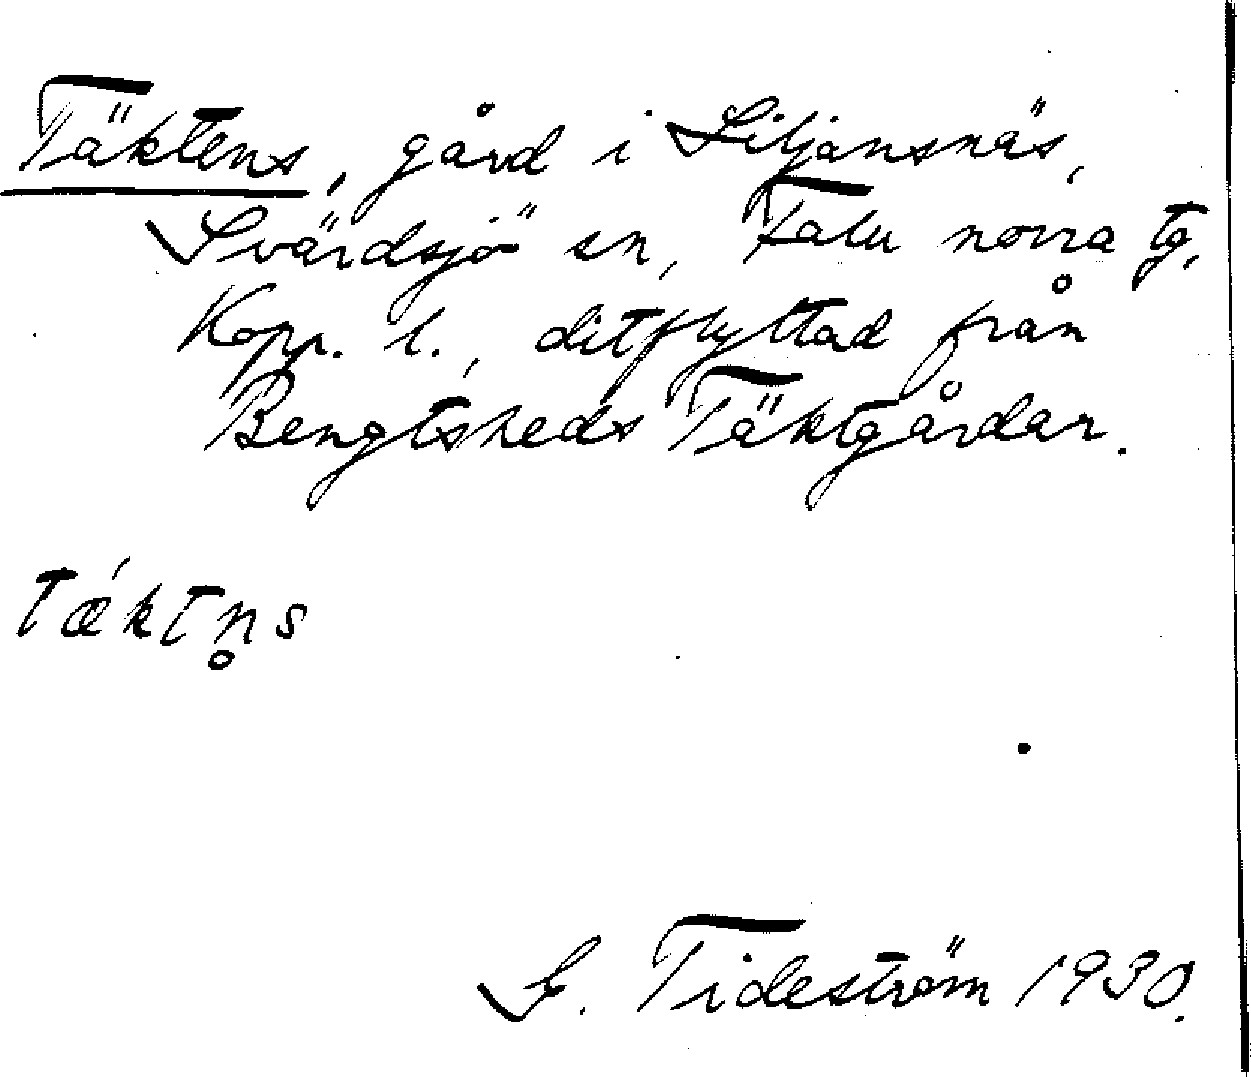 Täktens, gård i Siljansnäs,
Svärdsjö sn, Falu norra tg,
Kopp. l., ditflyttad från
Bengtsheds Täktgårdar.
tǽktn̥s
G. Tideström 1930.